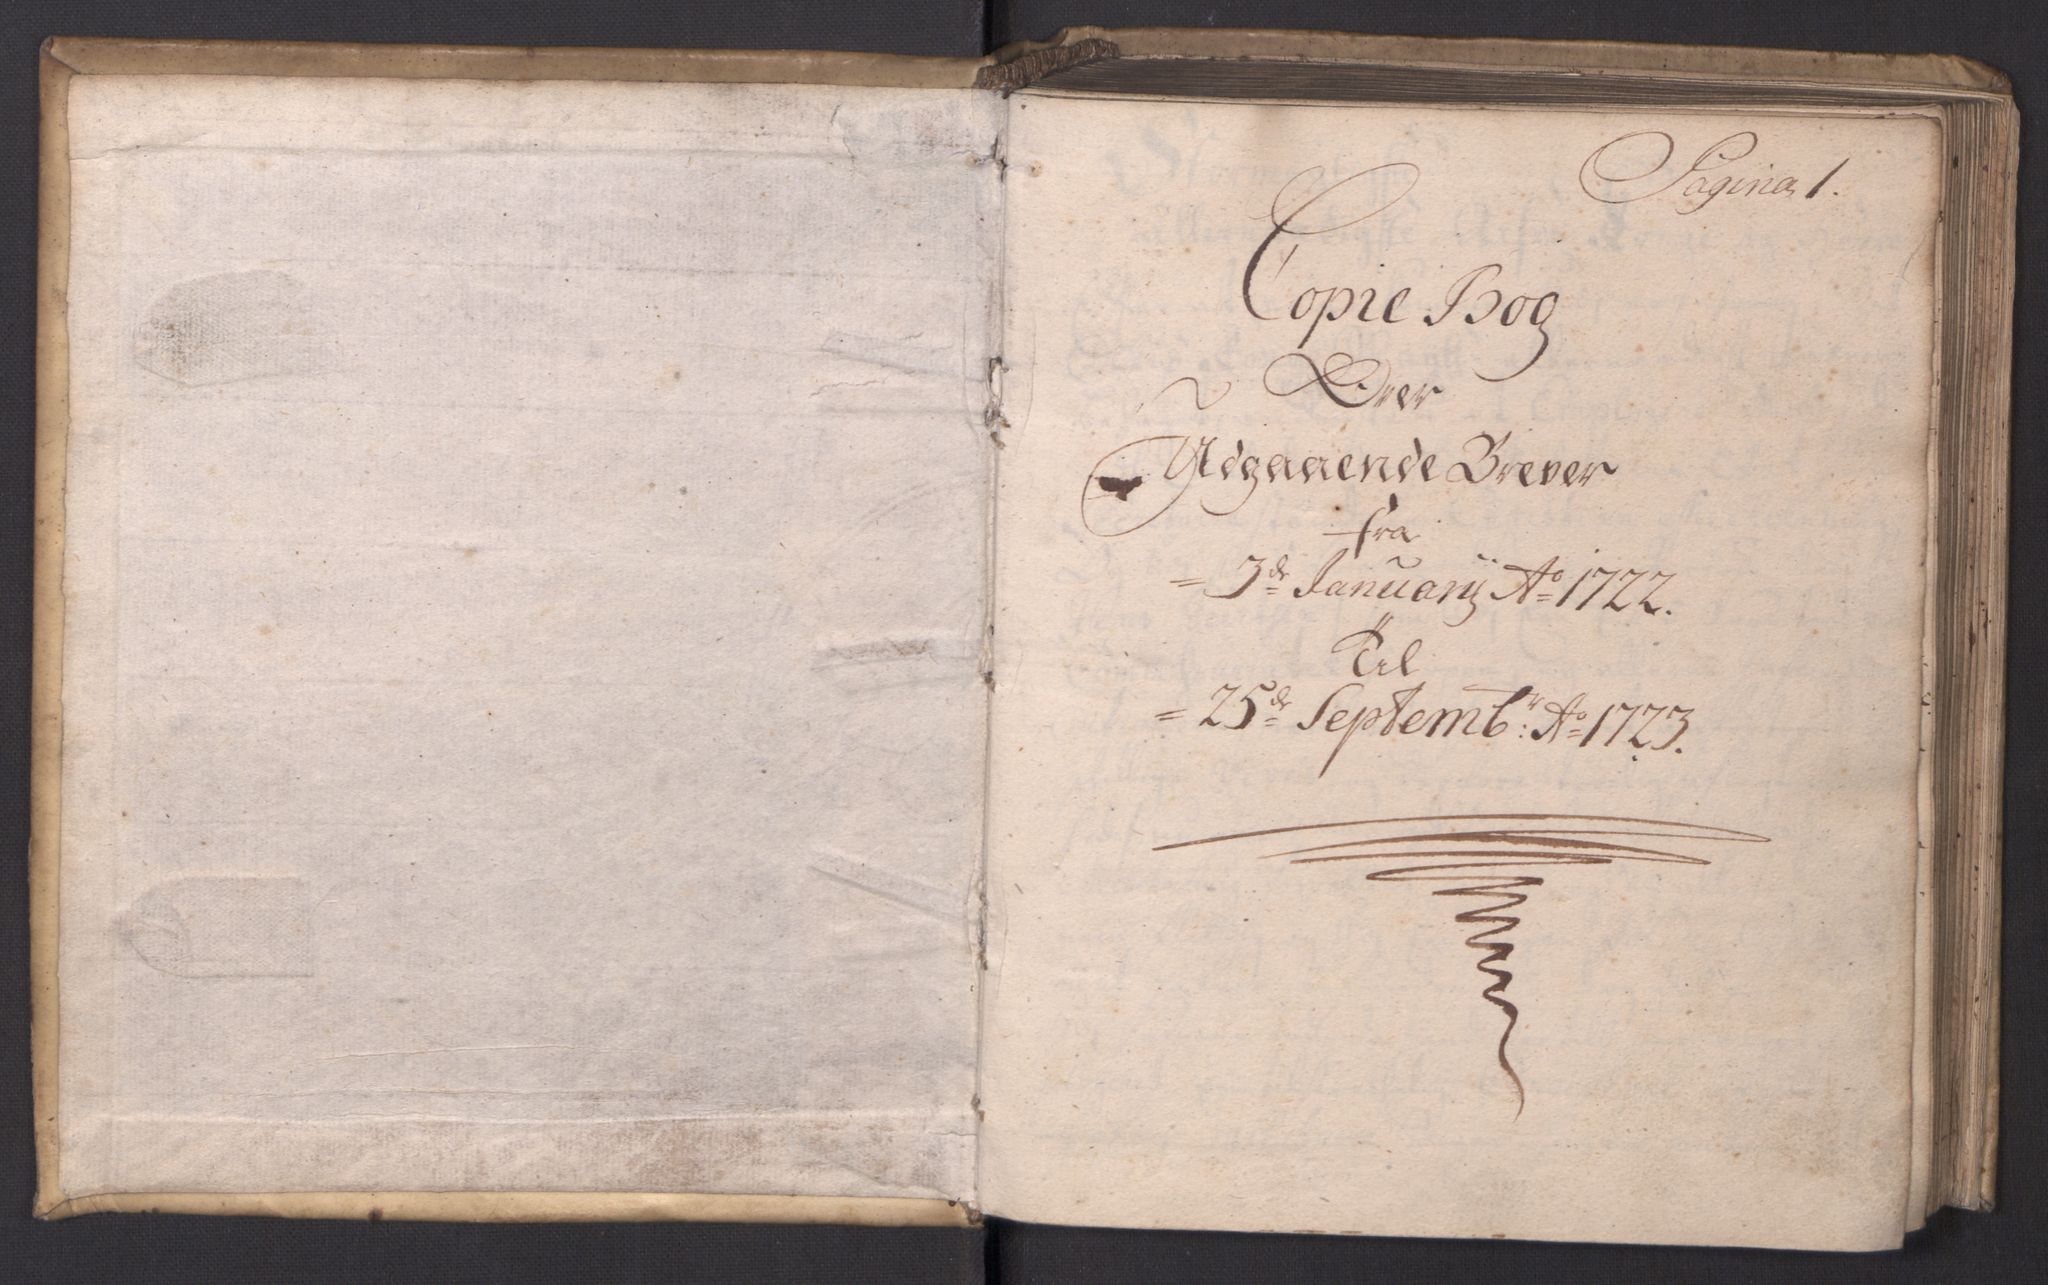 Pagina 1.
Copie Bog
Over
Udgaaende Brever
fra
= 3de Januarij Ao 1722.
Til
= 25de Septembr: Ao 1723.